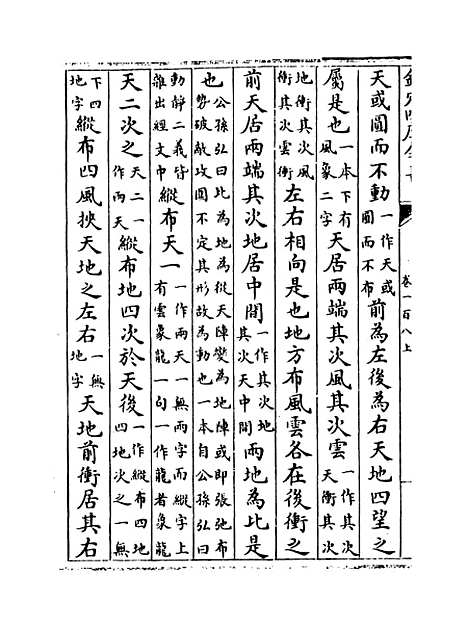 欽定四庫全書
卷一百八上
天或圓而不動一作天或圓而不布前為左後為右天地四望之
屬是也一本下有風象二字天居兩端其次風其次雲一作其次天衝其次
地衝其次風衝其次雲衝左右相向是也地方布風雲各在後衝之
前天居兩端其次地居中間一作其次地其次天中間兩地為比是
也公孫弘曰比為地為從天陣變為地陣或即張弛布勢破敵攻圍不定其形故為動也一本自公孫弘曰
動靜二義皆雜出經文中縱布天一一作兩天一無兩字而縱字上有雲象龍一句一作龍者象龍
天二次之天二一作兩天縱布地四次於天後一作縱布四地四地次之一無
下四地字縱布四風挾天地之左右一無地字天地前衝居其右